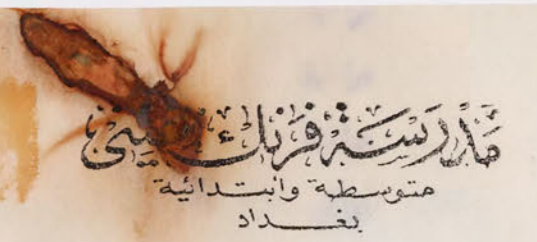 مدرسة فرنك
متوسطة وابتدائية
بغداد